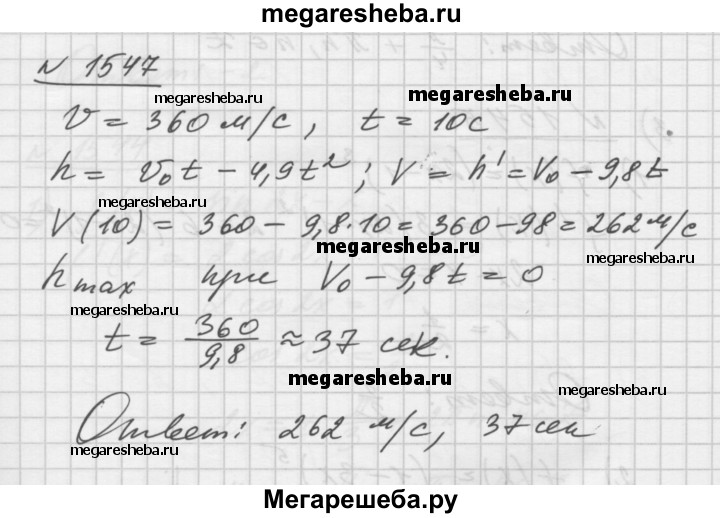 megaresheba.ru
N 1547
megaresheba.ru
megaresheba.ru
V = 360 м/с, t = 10с
h = V₀t - 4,9t²; V = h' = V₀ - 9,8t
megaresheba.ru
megaresheba.ru
V(10) = 360 - 9,8·10 = 360 - 98 = 262 м/с
megaresheba.ru
h max при V₀ - 9,8t = 0
t = 360/9,8 ≈ 37 сек.
megaresheba.ru
megaresheba.ru
Ответ: 262 м/с, 37 сек
megaresheba.ru
megaresheba.ru
Мегарешеба.ру